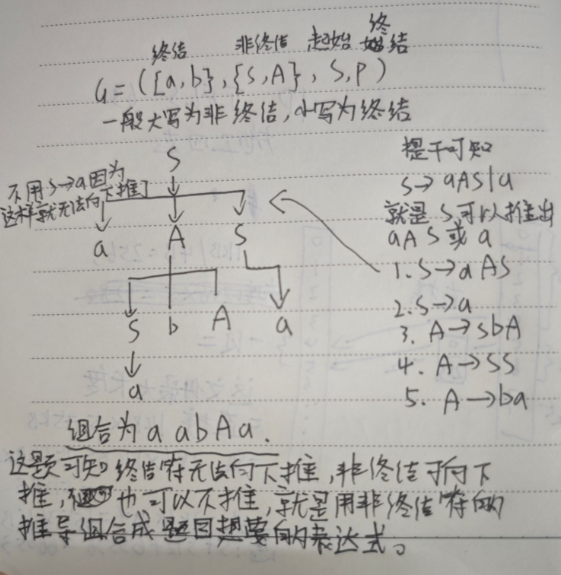 终结 非终结 起始 终结
G=({a,b},{S,A},S,P)
一般大写为非终结,小写为终结
S
不用S→a因为
这样就无法向下推了
a A S
S b A a
a
组合为aabAa.
题干可知
S→aAS|a
就是S可以推出
aAS或a
1.S→aAS
2.S→a
3.A→SbA
4.A→SS
5.A→ba
这题可知终结符无法向下推,非终结可向下
推,但也可以不推,就是用非终结符的
推导组合成题目想要的表达式。